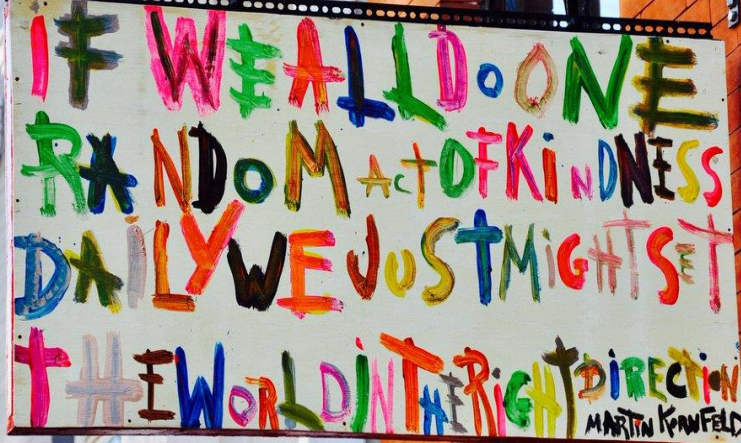 IF WE ALL DO ONE
RANDOM ACT OF KiNDNESS
DAiLY WE JUST MiGHT SET
THE WORLD iN THE RiGHT DiRECTiON
MARTIN KORNFELD